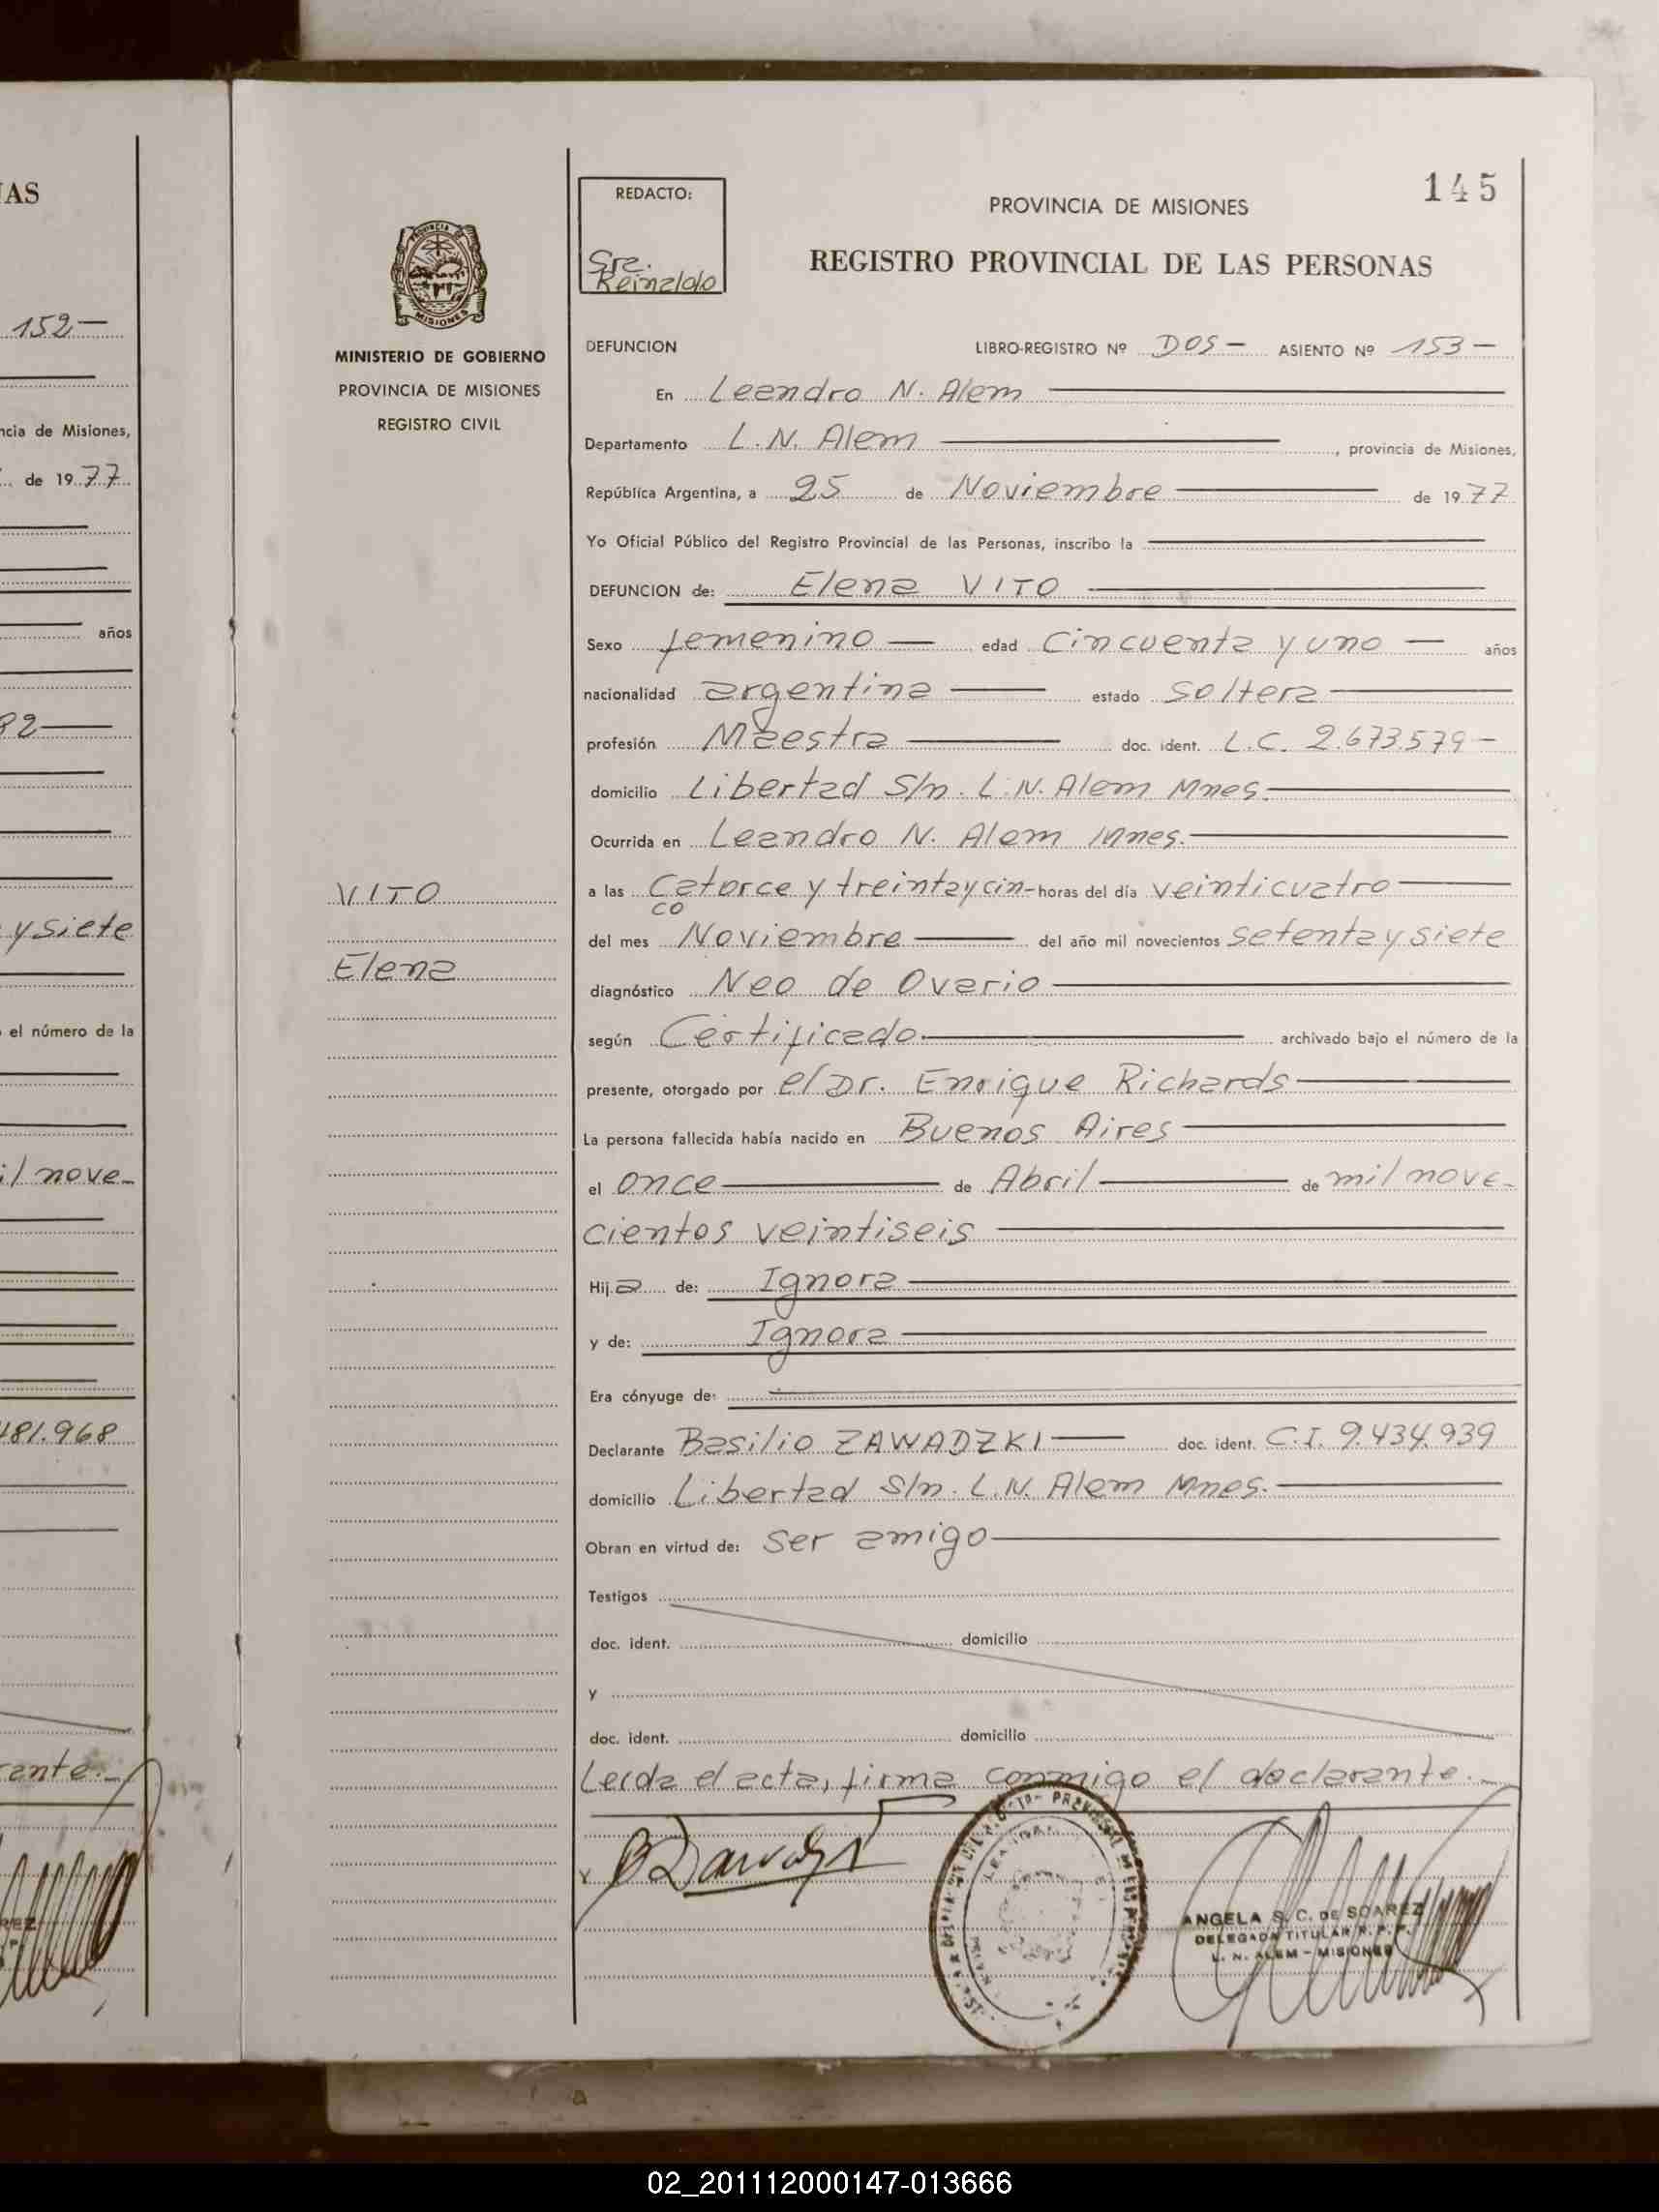 IAS
152
ncia de Misiones,
de 1977
años
82
y siete
el número de la
il nove-
481.968
rante.-
REZ
MINISTERIO DE GOBIERNO
PROVINCIA DE MISIONES
REGISTRO CIVIL
VITO
Elena
REDACTO:
Sra.
Reinaldo
145
PROVINCIA DE MISIONES
REGISTRO PROVINCIAL DE LAS PERSONAS
DEFUNCION LIBRO-REGISTRO Nº DOS- ASIENTO Nº 153-
En Leandro N. Alem
Departamento L.N. Alem, provincia de Misiones,
República Argentina, a 25 de Noviembre de 1977
Yo Oficial Público del Registro Provincial de las Personas, inscribo la
DEFUNCION de: Elena VITO
Sexo femenino edad Cincuenta y uno años
nacionalidad argentina estado Soltera
profesión Maestra doc. ident. L.C. 2.673.579-
domicilio Libertad S/n. L.N. Alem Mnes.
Ocurrida en Leandro N. Alem Mnes.
a las Catorce y treinta y cin- horas del día veinticuatro
co
del mes Noviembre del año mil novecientos setenta y siete
diagnóstico Neo de Ovario
según Certificado. archivado bajo el número de la
presente, otorgado por el Dr. Enrique Richards
La persona fallecida había nacido en Buenos Aires
el once de Abril de mil nove-
cientos veintiseis
Hija de: Ignora
y de: Ignora
Era cónyuge de:
Declarante Basilio ZAWADZKI doc. ident. C.I. 9.434.939
domicilio Libertad S/n. L.N. Alem Mnes.
Obran en virtud de: ser amigo
Testigos
doc. ident. domicilio
y
doc. ident. domicilio
Leída el acta, firma conmigo el declarante.-
ANGELA S. C. DE SOAREZ
DELEGADA TITULAR R. P. P.
L. N. ALEM - MISIONES
02_201112000147-013666